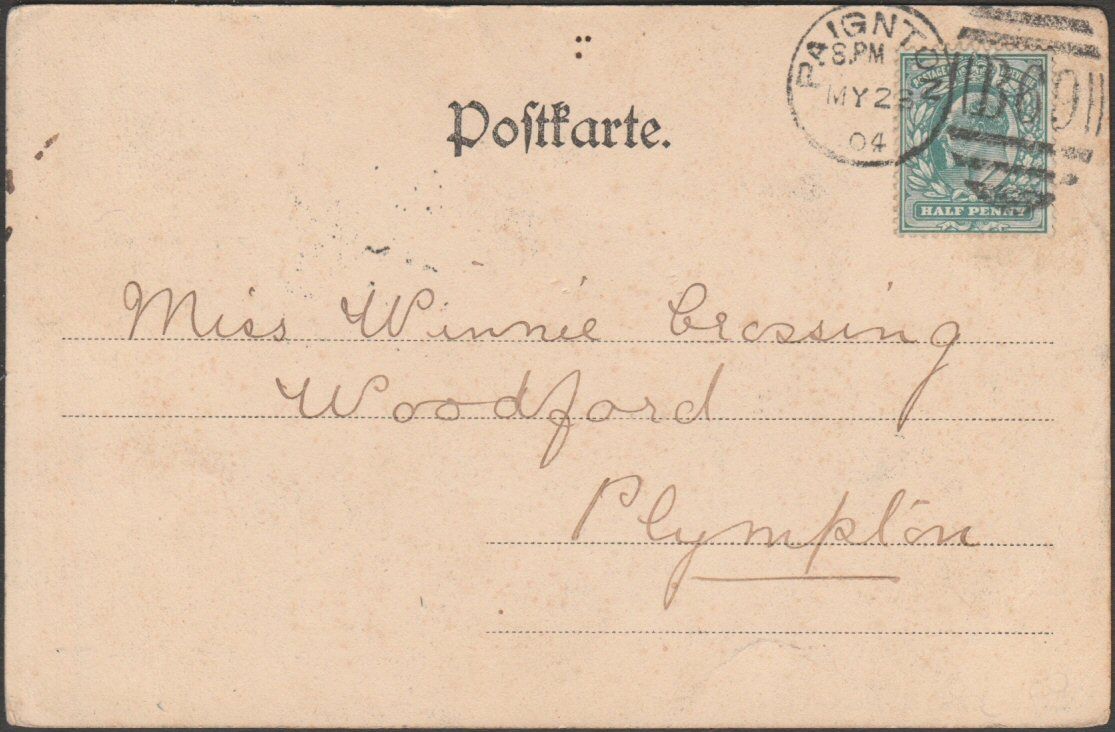 PAIGNTON
8.PM
MY 2
04
B69
POSTAGE
HALF PENNY
Poſtkarte.
Miss Winnie Crossing
Woodford
Plympton